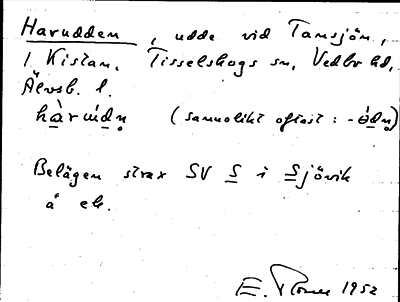 Harudden, udde vid Tansjön,
1 Kistan, Tisselskogs sn, Vedbo hd,
Älvsb. l.
hàrúdṇ (sannolikt oftast: -òdṇ)
Belägen strax SV S i Sjövik
å ek.
E. 1952